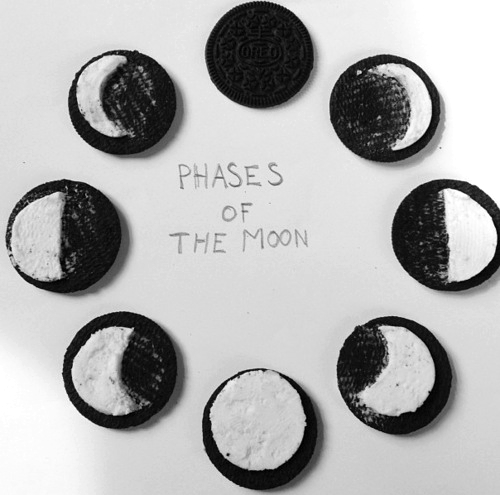 OREO
PHASES
OF
THE MOON